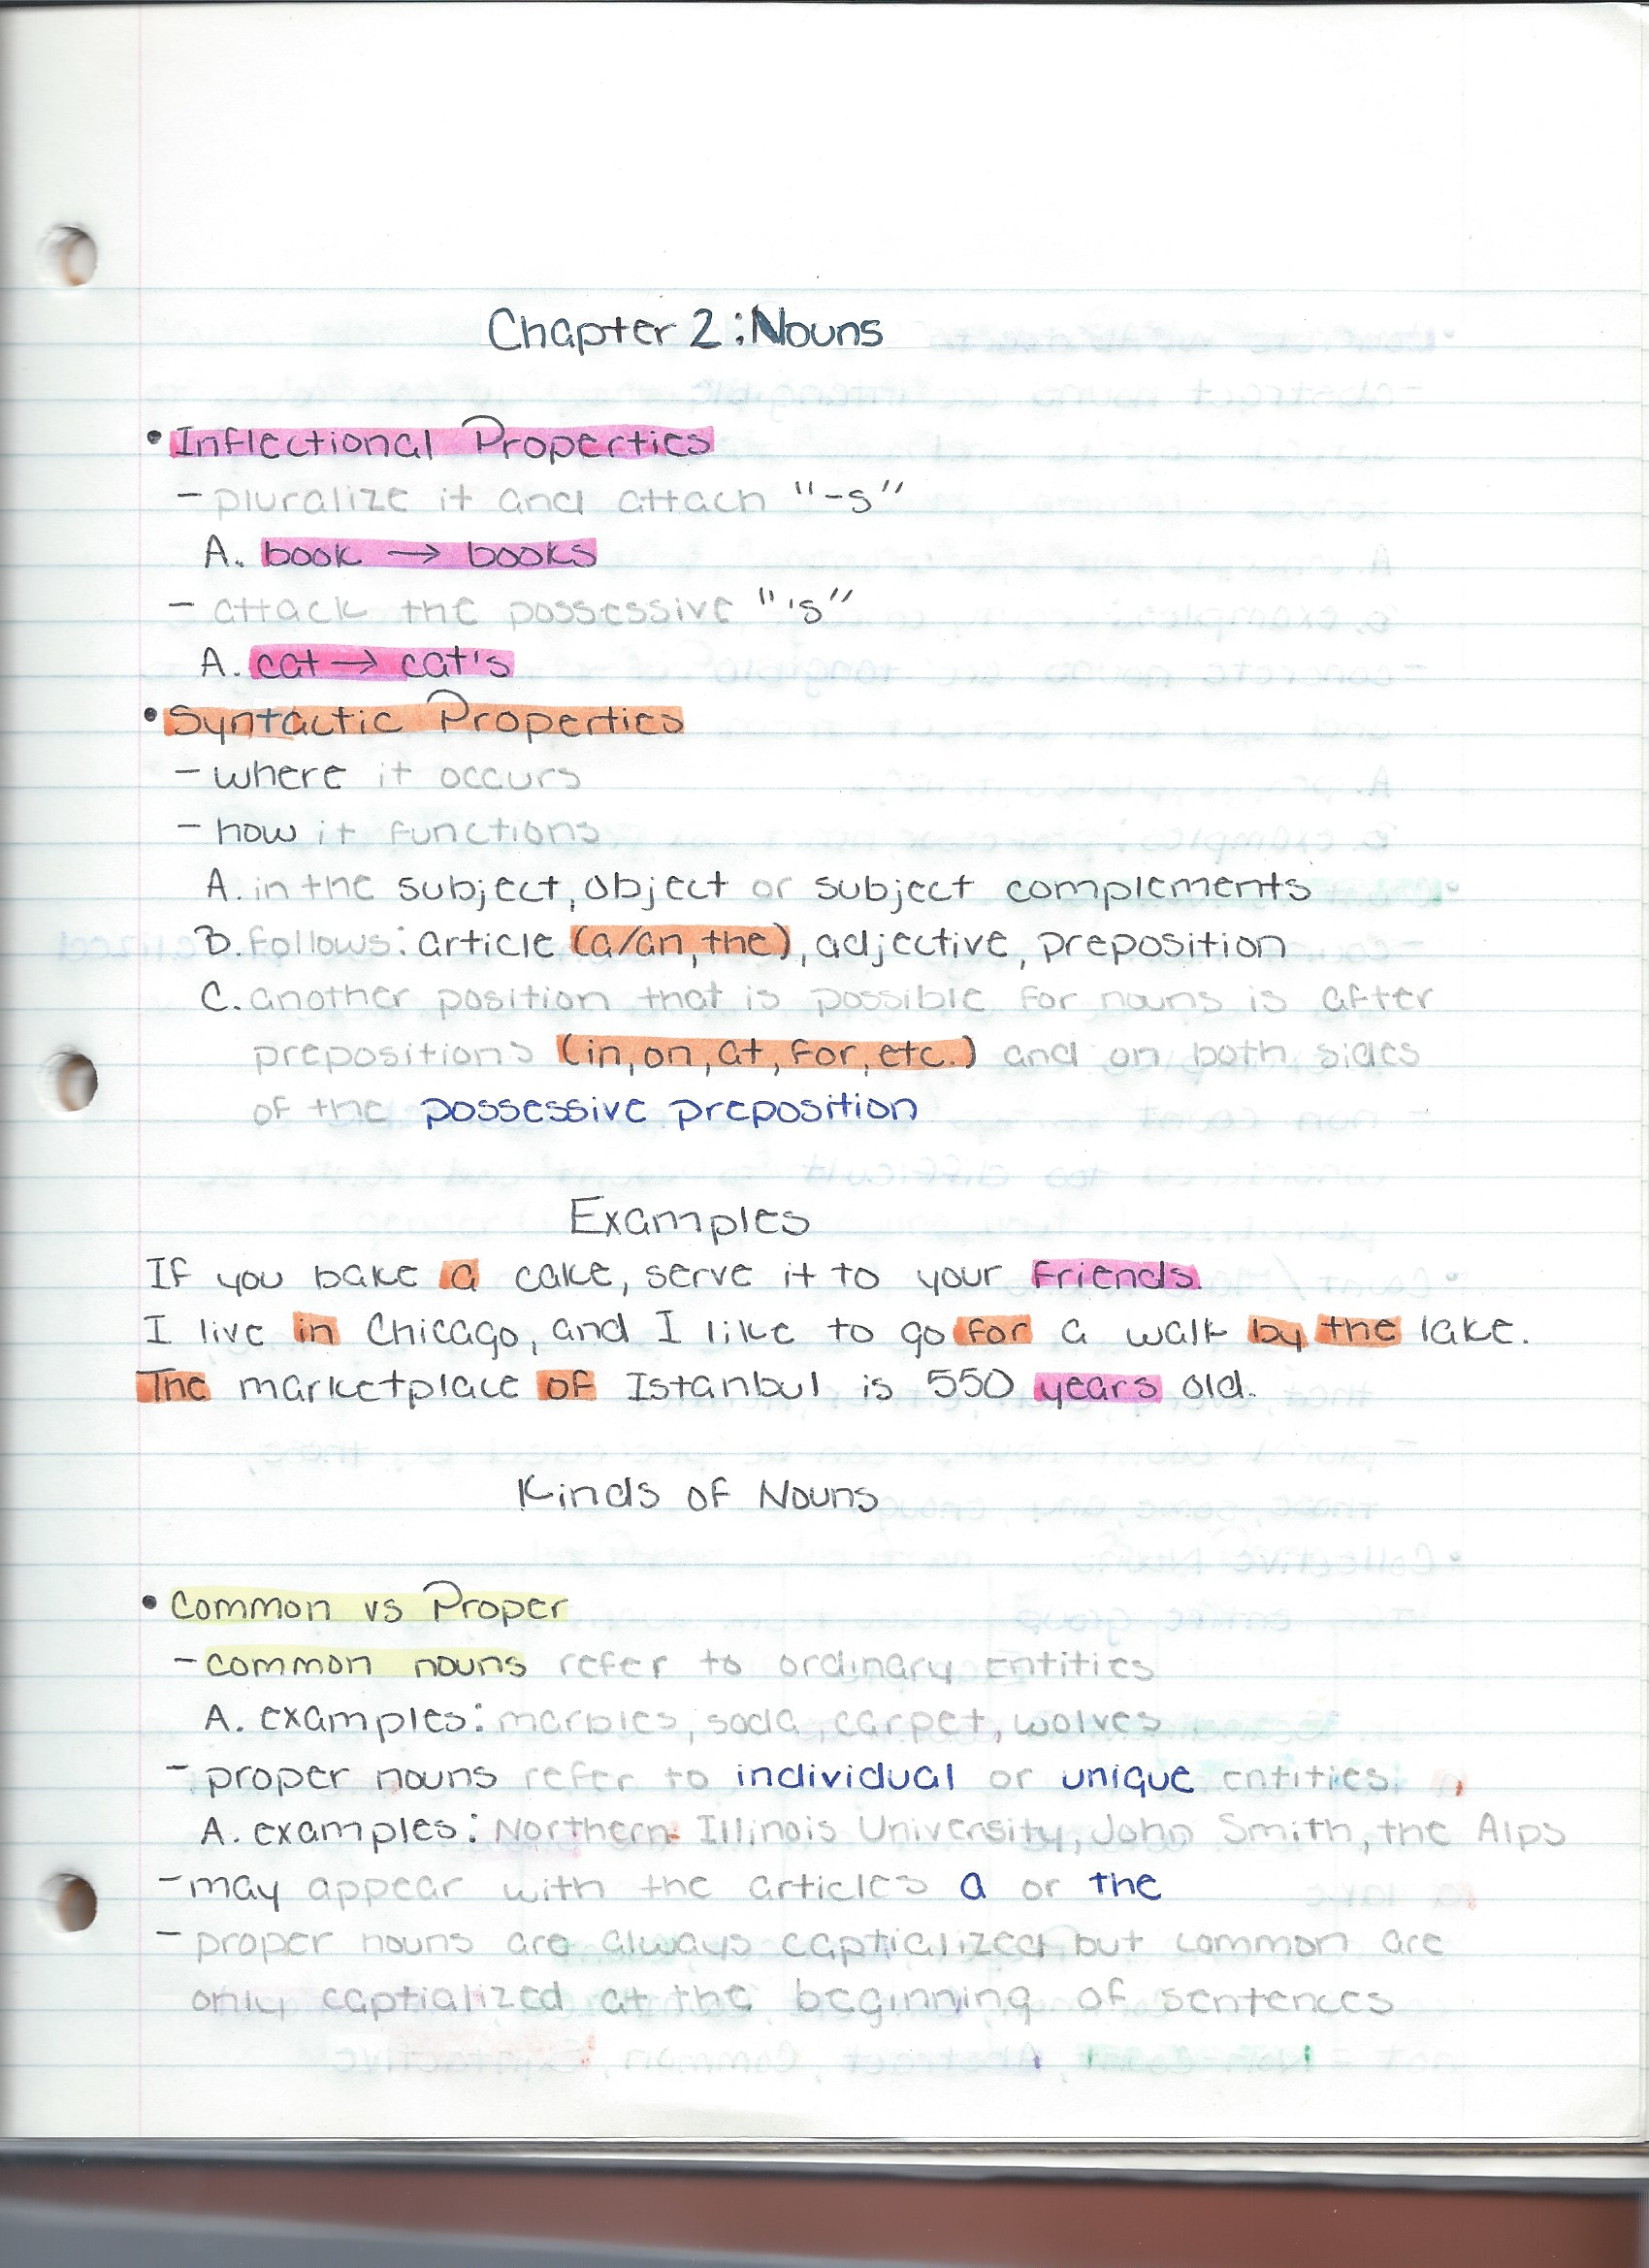 Chapter 2: Nouns
• Inflectional Properties
- pluralize it and attach "-s"
A. book → books
- attack the possessive "'s"
A. cat → cat's
• Syntactic Properties
- where it occurs
- how it functions
A. in the subject, object or subject complements
B. follows: article (a/an, the), adjective, preposition
C. another position that is possible for nouns is after
prepositions (in, on, at, for, etc.) and on both sides
of the possessive preposition
Examples
If you bake a cake, serve it to your friends.
I live in Chicago, and I like to go for a walk by the lake.
The marketplace of Istanbul is 550 years old.
Kinds of Nouns
• Common vs Proper
- common nouns refer to ordinary entities
A. examples: marbles, soda, carpet, wolves
- proper nouns refer to individual or unique entities
A. examples: Northern Illinois University, John Smith, the Alps
- may appear with the articles a or the
- proper nouns are always captialized but common are
only captialized at the beginning of sentences